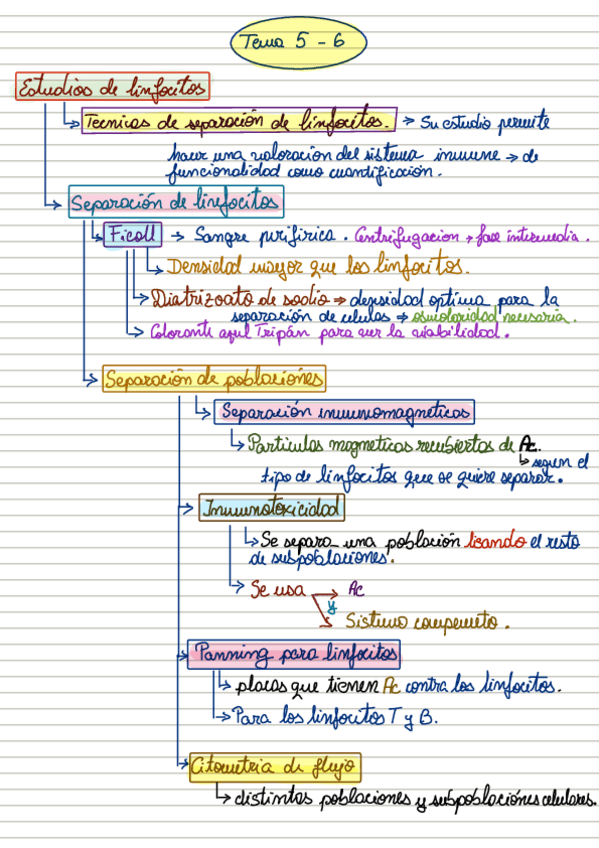 Tema 5 - 6
Estudios de linfocitos
Tecnicas de separación de linfocitos. → Su estudio permite
hacer una valoracion del sistema inmune → de
funcionalidad como cuantificación.
Separación de linfocitos
Ficoll → Sangre periférica. Centrifugacion → fase intermedia.
Densidad mayor que los linfocitos.
Diatrizoato de sodio ⇒ densidad optima para la
separación de celulas → osmolaridad necesaria.
Colorante azul Tripán para ver la viabilidad.
Separación de poblaciones
Separación inmunomagneticas
Particulas magneticas recubiertas de Ac.
segun el
tipo de linfocitos que se quiere separar.
Inmunotoxicidad
Se separa una población lisando el resto
de subpoblaciones.
Se usa → Ac
y
Sistema complemento.
Panning para linfocitos
placas que tienen Ac contra los linfocitos.
Para los linfocitos T y B.
Citometria de flujo
distintas poblaciones y subpoblaciones celulares.